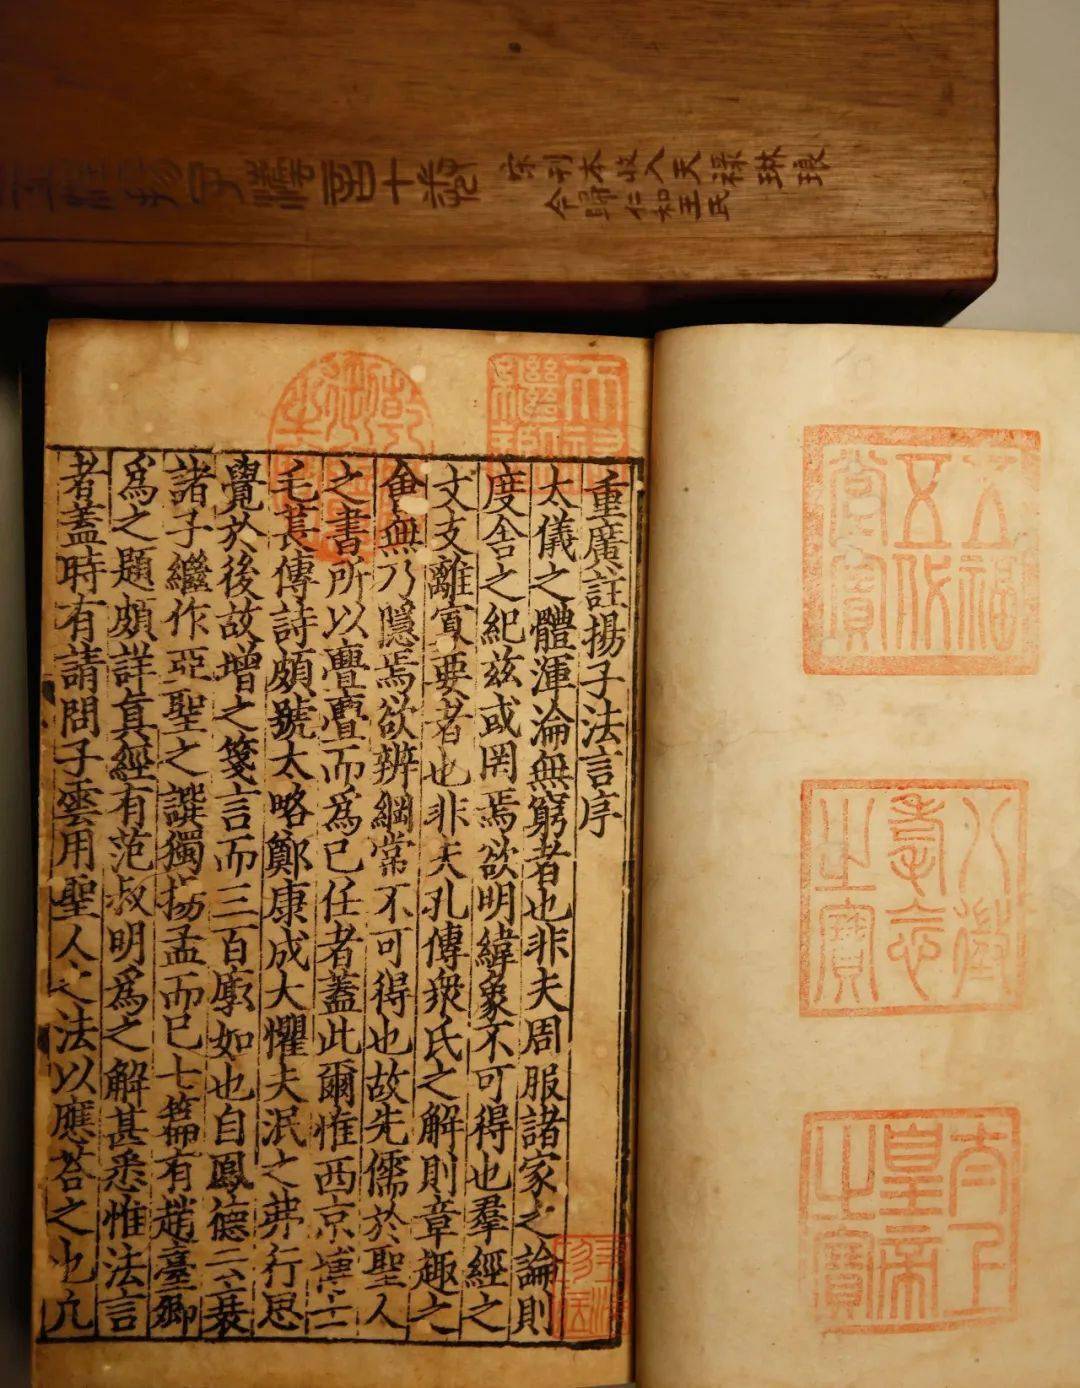 揚子灋言十卷
宋刊本收入天祿琳琅
今歸仁和王氏
五福五代堂寶
八徵耄念之寶
太上皇帝之寶
天祿繼鑑
乾隆御覽之寶
重廣註揚子法言序
太儀之體渾淪無窮者也非夫周服諸家之論則
度舍之紀茲或罔焉欲明緯象不可得也羣經之
文支離寡要者也非夫孔傳衆氏之解則章趣之
會無乃隱焉欲辨綱常不可得也故先儒於聖人
之書所以亹亹而爲已任者蓋此爾惟西京博士
毛萇傳詩頗號太略鄭康成大懼夫泯之弗行思
覺於後故增之箋言而三百廓如也自鳳德云衰
諸子繼作亞聖之譔獨揚孟而已七篇有趙臺卿
爲之題頗詳眞經有范叔明爲之解甚悉惟法言
者蓋時有請問子雲用聖人之法以應荅之也亢